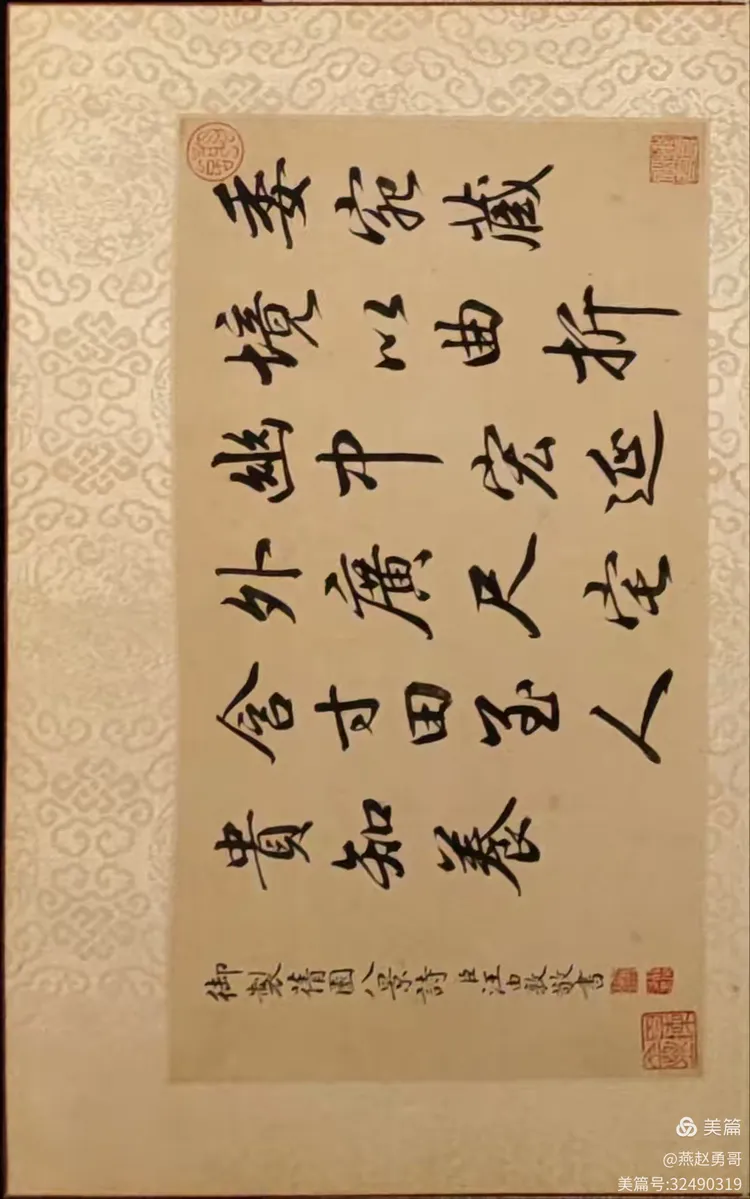 委宛藏
境以曲折
幽中宏延
外廣尺宅
含寸田至人
貴知養
御製蒨園八景詩 臣汪由敦敬書
美篇
@燕赵勇哥
美篇号:32490319